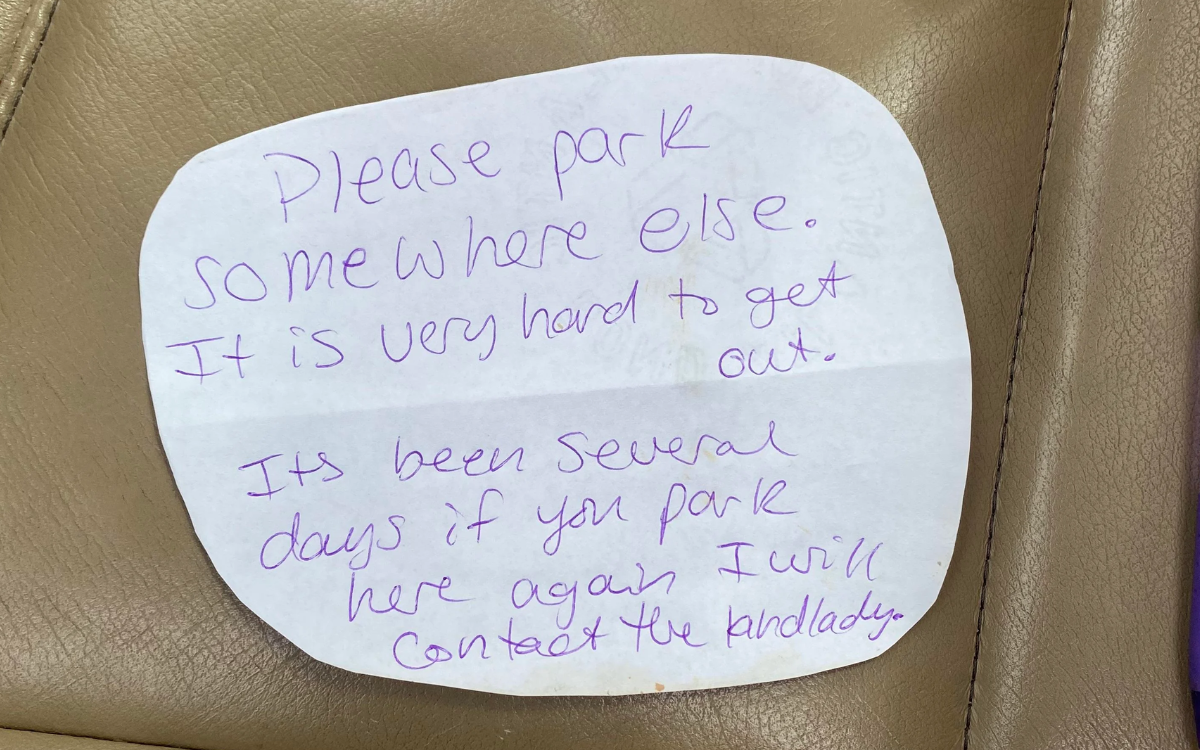 Please park
somewhere else.
It is very hard to get
out.
Its been several
days if you park
here again I will
contact the landlady.